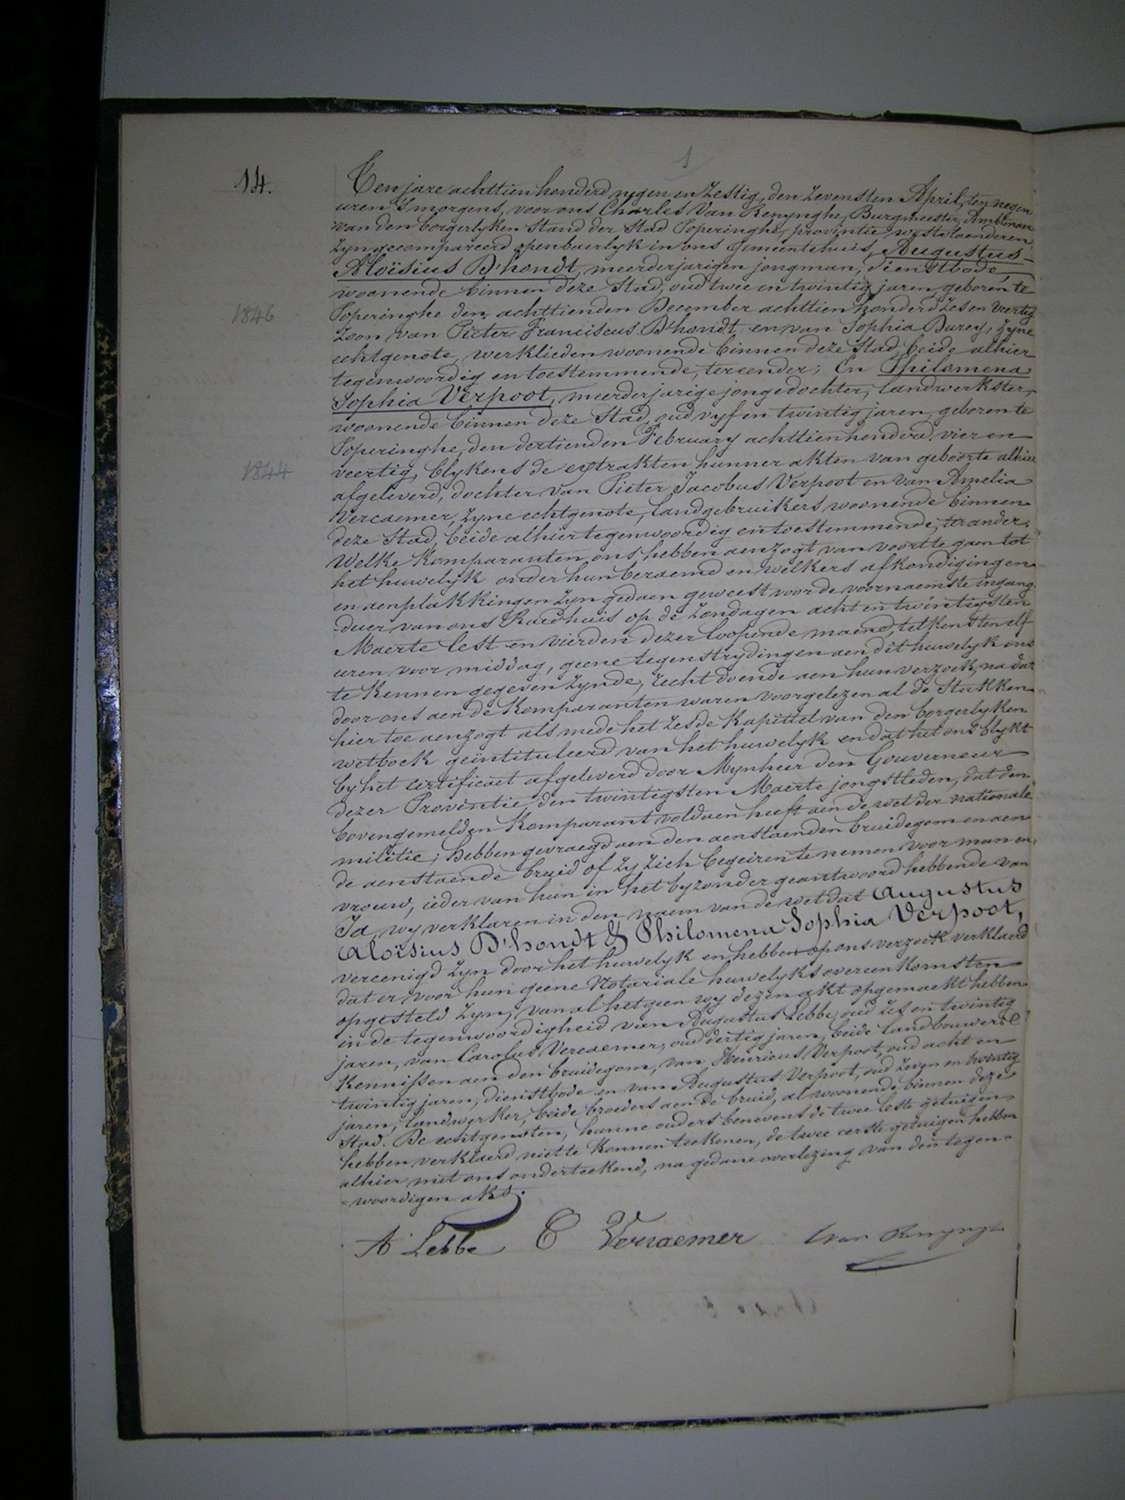 1
14.
Ten jare achttien honderd negen en zestig, den zevensten April, ten negen
uren s'morgens, voor ons Charles Van Renynghe, Burgmeester, Ambtenaar
van den borgerlyken stand der Stad Poperinghe, provintie westvlaenderen,
zyn gecompareerd openbaerlyk in ons gemeentehuis, Augustus
Aloïsius D'hondt, meerderjarigen jongman, dienstbode,
woonende binnen deze Stad, oud twee en twintig jaren, geboren te
1846
Poperinghe den achttienden December achttien honderd zes en veertig
Zoon van Pieter Franciscus D'hondt, en van Sophia Durey, zyne
echtgenote, werklieden woonende binnen deze Stad, beide alhier
tegenwoordig en toestemmende, ter eender; En Philomena
Sophia Verpoot, meerderjarige jongedochter, landwerkster,
woonende binnen deze Stad, oud vyf en twintig jaren, geboren te
Poperinghe, den dertienden February achttien honderd vier en
1844
veertig, blykens de extrakten hunner akten van geboorte alhier
afgeleverd, dochter van Pieter Jacobus Verpoot en van Amelia
Vercaemer, zyne echtgenote, landgebruikers, woonende binnen
deze Stad, beide alhier tegenwoordig en toestemmende, ter ander;
Welke komparanten ons hebben aenzogt van voort te gaen tot
het huwelyk onder hun beraemd en welkers afkondigingen
en aenplakkingen zyn gedaen geweest voor de voornaemste ingang
deur van ons Raedhuis op de zondagen acht en twintigsten
Maerte lest en vierden dezer loopende maend, telkens ten elf
uren voor middag, geene tegenstrydingen aen dit huwelyk ons
te kennen gegeven zynde, recht doende aen hun verzoek, na dat
door ons aen de komparanten waren voorgelezen al de Stukken
hier toe aenzogt als mede het zesde kapittel van den borgerlyken
wetboek geïntituleerd van het huwelyk en dat het ons blykt
by het certificaet afgeleverd door Mynheer den Gouverneur
dezer Provintie, den twintigsten Maerte jongstleden, dat den
bovengemelden komparant voldaen heeft aen de wet der nationale
militie; hebben gevraegd aen den aenstaenden bruidegom en aen
de aenstaende bruid of zy zich begeiren te nemen voor man en
vrouw, ieder van hun in het byzonder geantwoord hebbende van
Ja, wy verklaren in den naem van de wet dat Augustus
Aloïsius D'hondt & Philomena Sophia Verpoot,
vereenigd zyn door het huwelyk en hebben op ons verzoek verklaerd
dat er voor hun geene Notariale huwelyks overeenkomsten
opgesteld zyn; van al het geen wy dezen akt opgemaekt hebben
in de tegenwoordigheid van Augustus Lebbe, oud zes en twintig
jaren, van Carolus Vercaemer, oud dertig jaren, beide landbouwers
kennissen aen den bruidegom, van Henricus Verpoot, oud acht en
twintig jaren, dienstbode en van Augustus Verpoot, oud zeven en twintig
jaren, landwerker, beide broeders aen de bruid, al woonende binnen deze
Stad. De echtgenoten, hunne ouders benevens de twee leste getuigen
hebben verklaerd niet te konnen teekenen, de twee eerste getuigen hebben
alhier met ons onderteekend, na gedane overlezing van den tegen=
=woordigen akt.
A Lebbe C Vercaemer